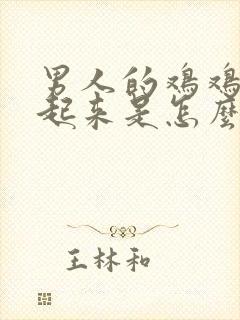 男人的鸡鸡
起来是怎麼
王林和